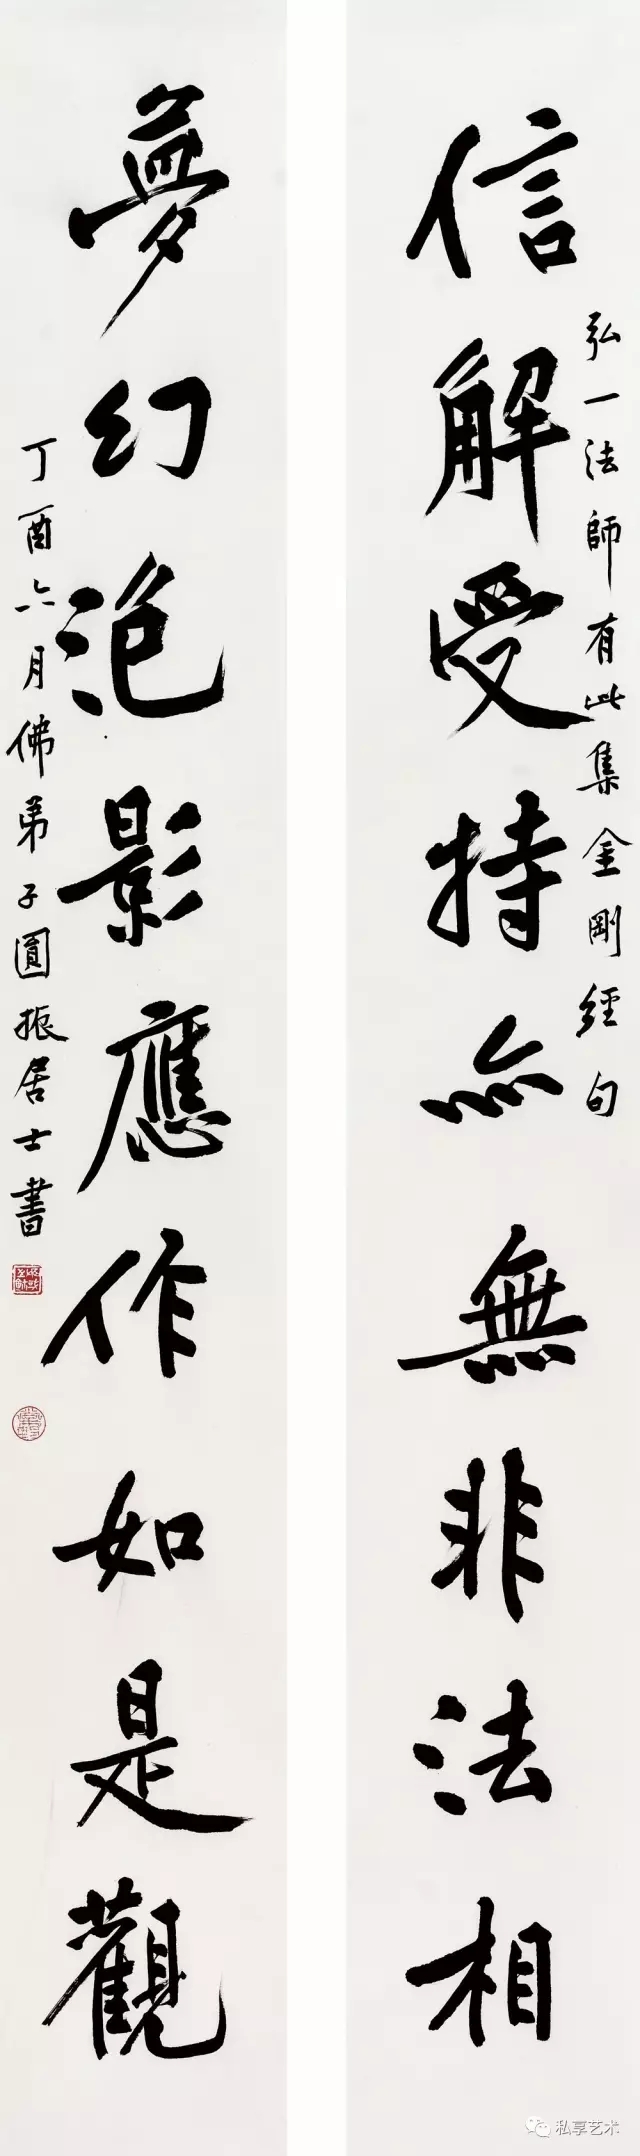 信解受持亦無非法相
弘一法師有此集金剛經句
夢幻泡影應作如是觀
丁酉六月佛弟子圓振居士書
私享艺术